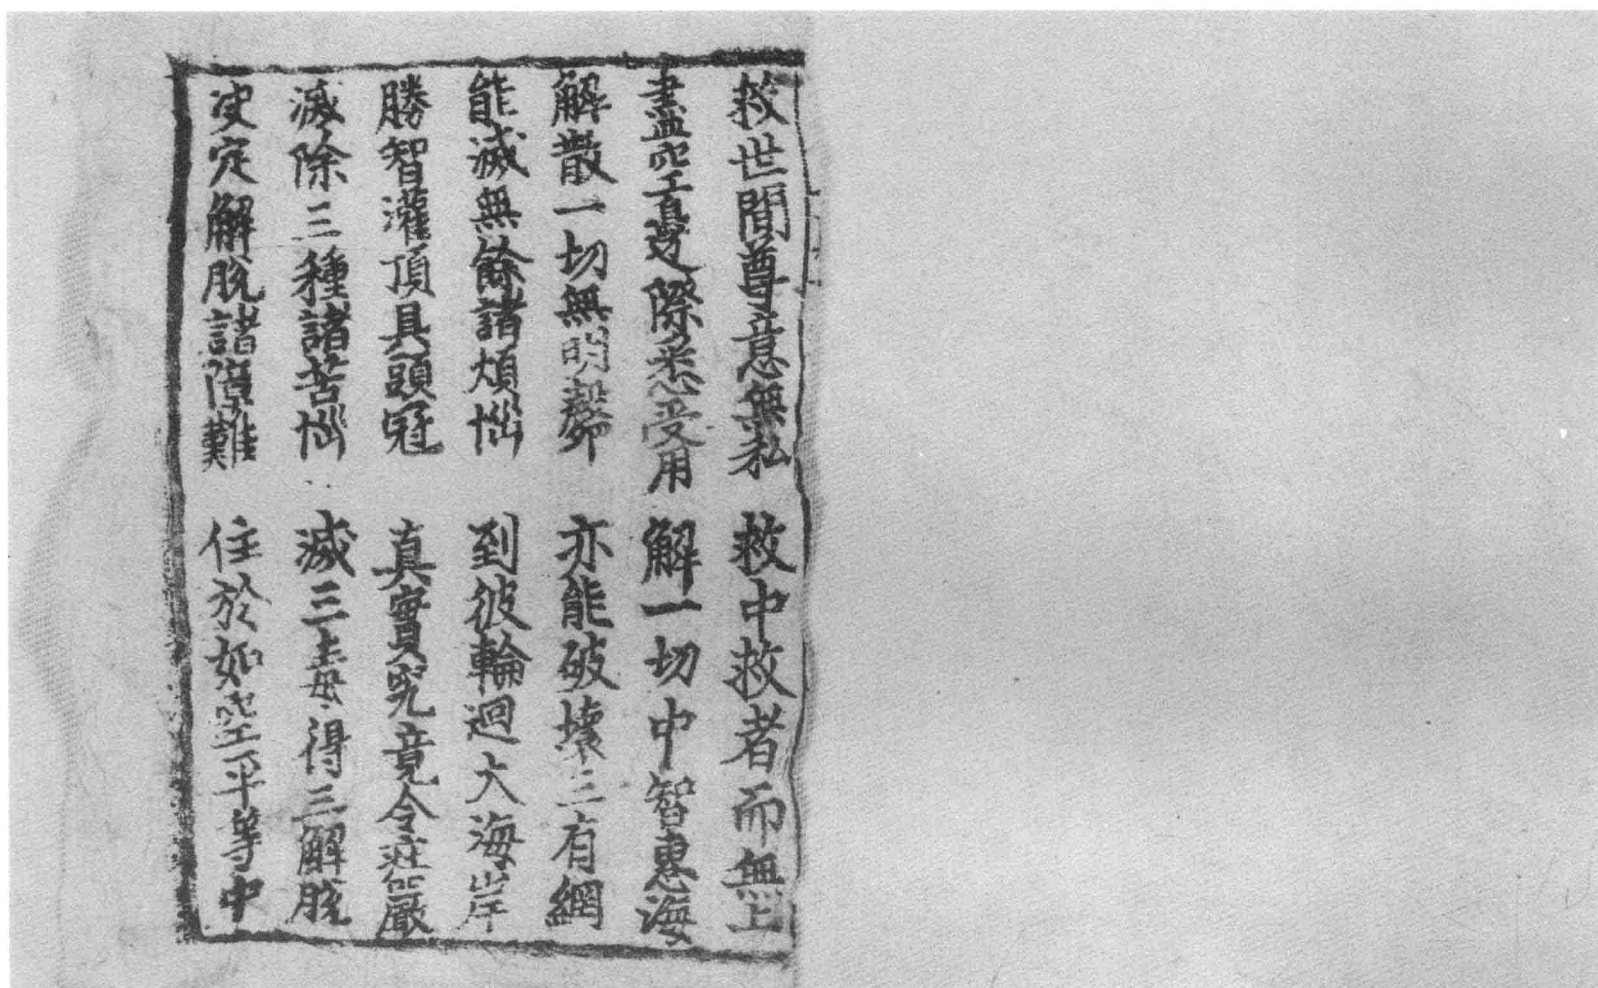 救世間尊意無私 救中救者而無上
盡空邊際悉受用 解一切中智惠海
解散一切無明𣫘 亦能破壞三有網
能滅無餘諸煩惱 到彼輪迴大海岸
勝智灌頂具頭冠 真實究竟令莊嚴
滅除三種諸苦惱 滅三毒得三解脫
决定解脫諸障難 住於如空平等中